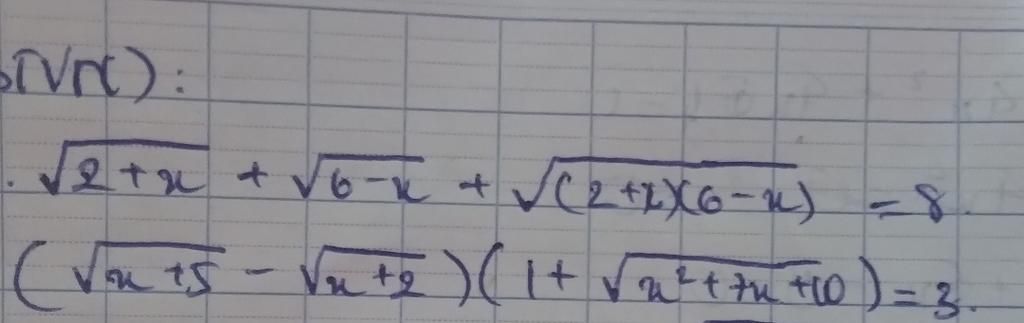 . √(2+x) + √(6-x) + √((2+x)(6-x)) = 8.
(√(x+5) - √(x+2))(1+ √(x²+7x+10)) = 3.